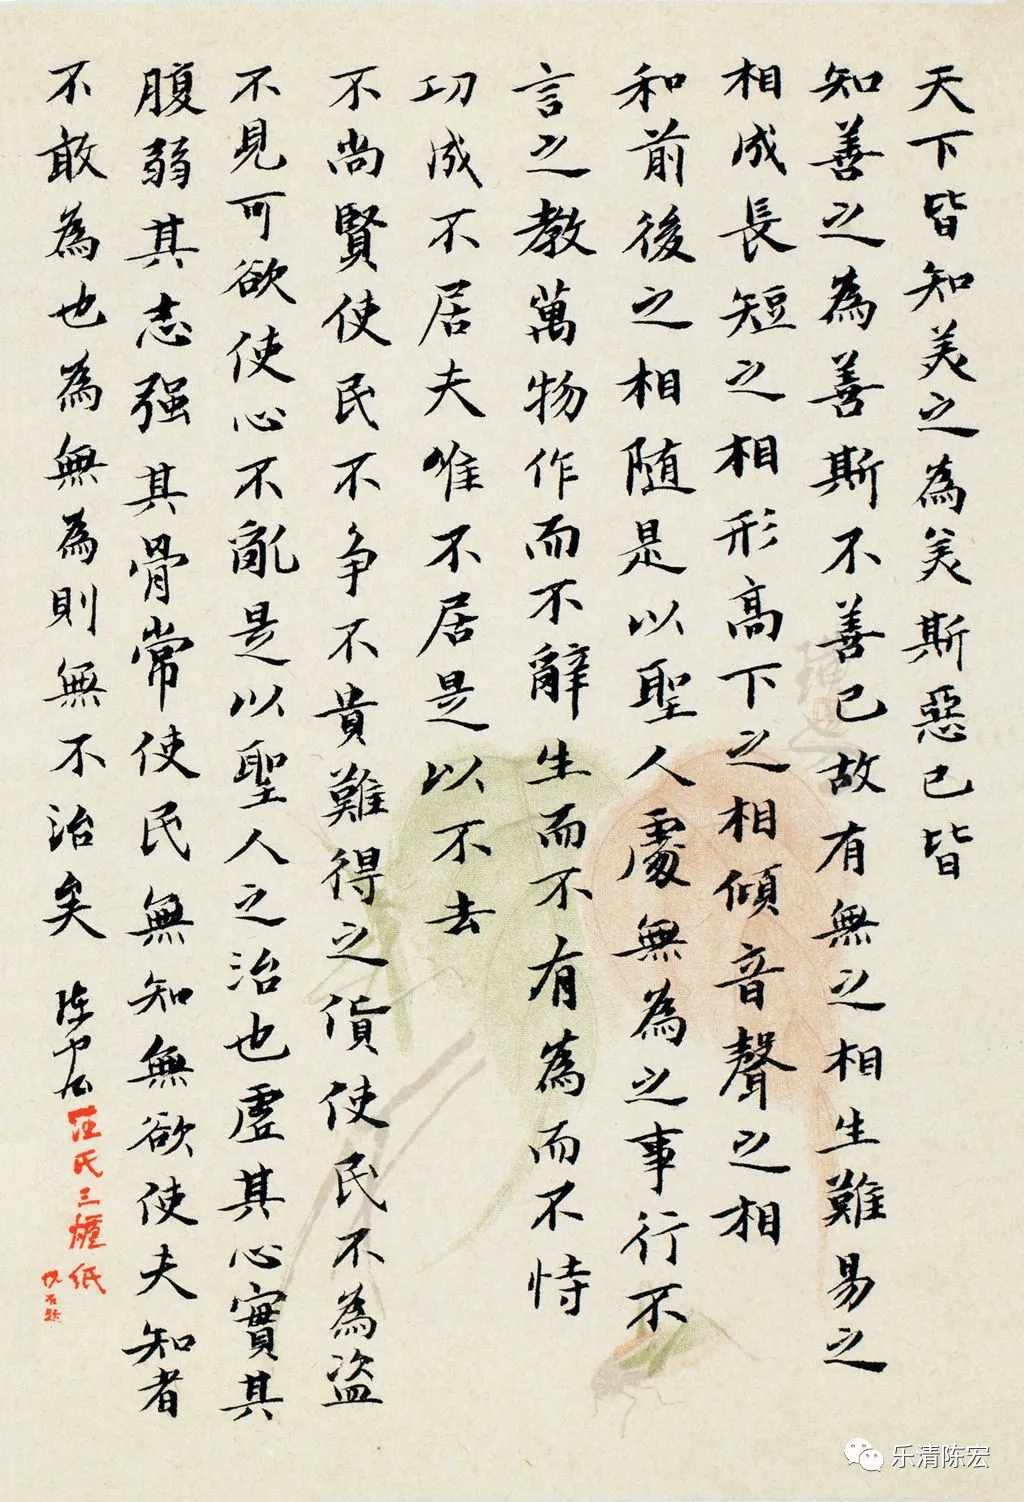 天下皆知美之為美斯惡已皆
知善之為善斯不善已故有無之相生難易之
相成長短之相形高下之相傾音聲之相
和前後之相随是以聖人處無為之事行不
言之教萬物作而不辭生而不有為而不恃
功成不居夫唯不居是以不去
不尚賢使民不争不貴難得之貨使民不為盜
不見可欲使心不亂是以聖人之治也虛其心實其
腹弱其志强其骨常使民無知無欲使夫知者
不敢為也為無為則無不治矣
陈
氏三
紙
乐清陈宏